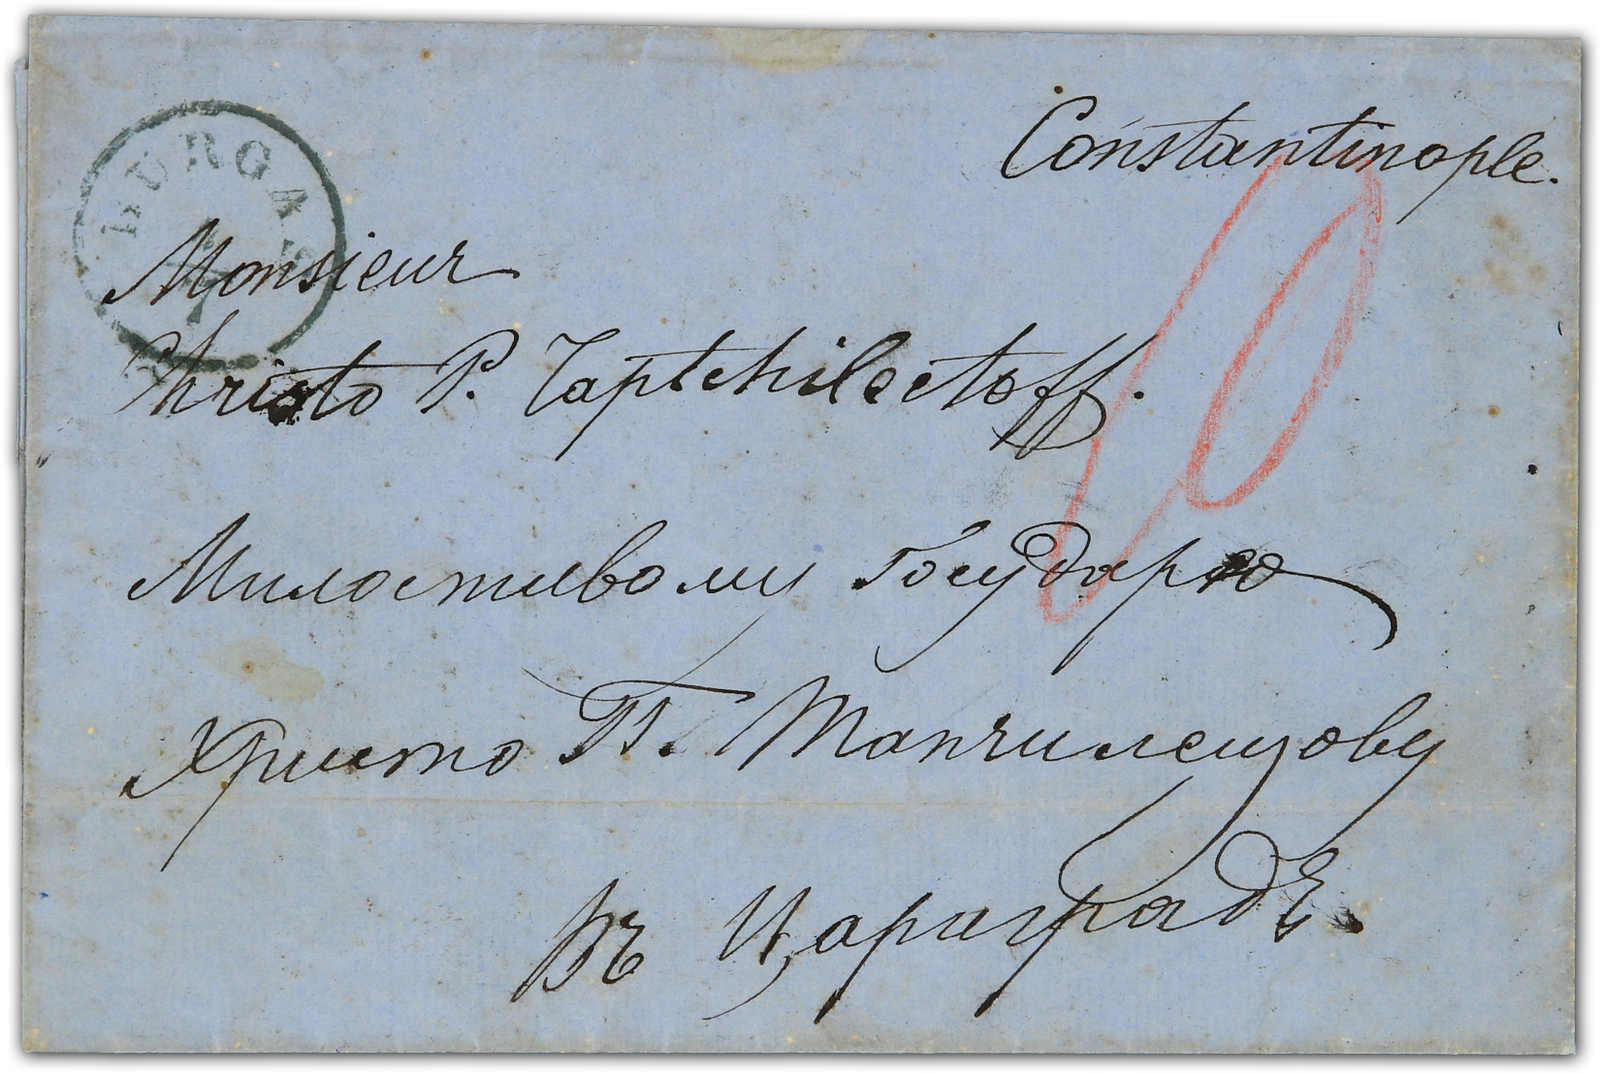 Constantinople.
BURGAS
Monsieur
Christo P. Taptchilectoff.
10
Милостивому Государю
Христо П. Тапчилещову
Въ Цариградъ.